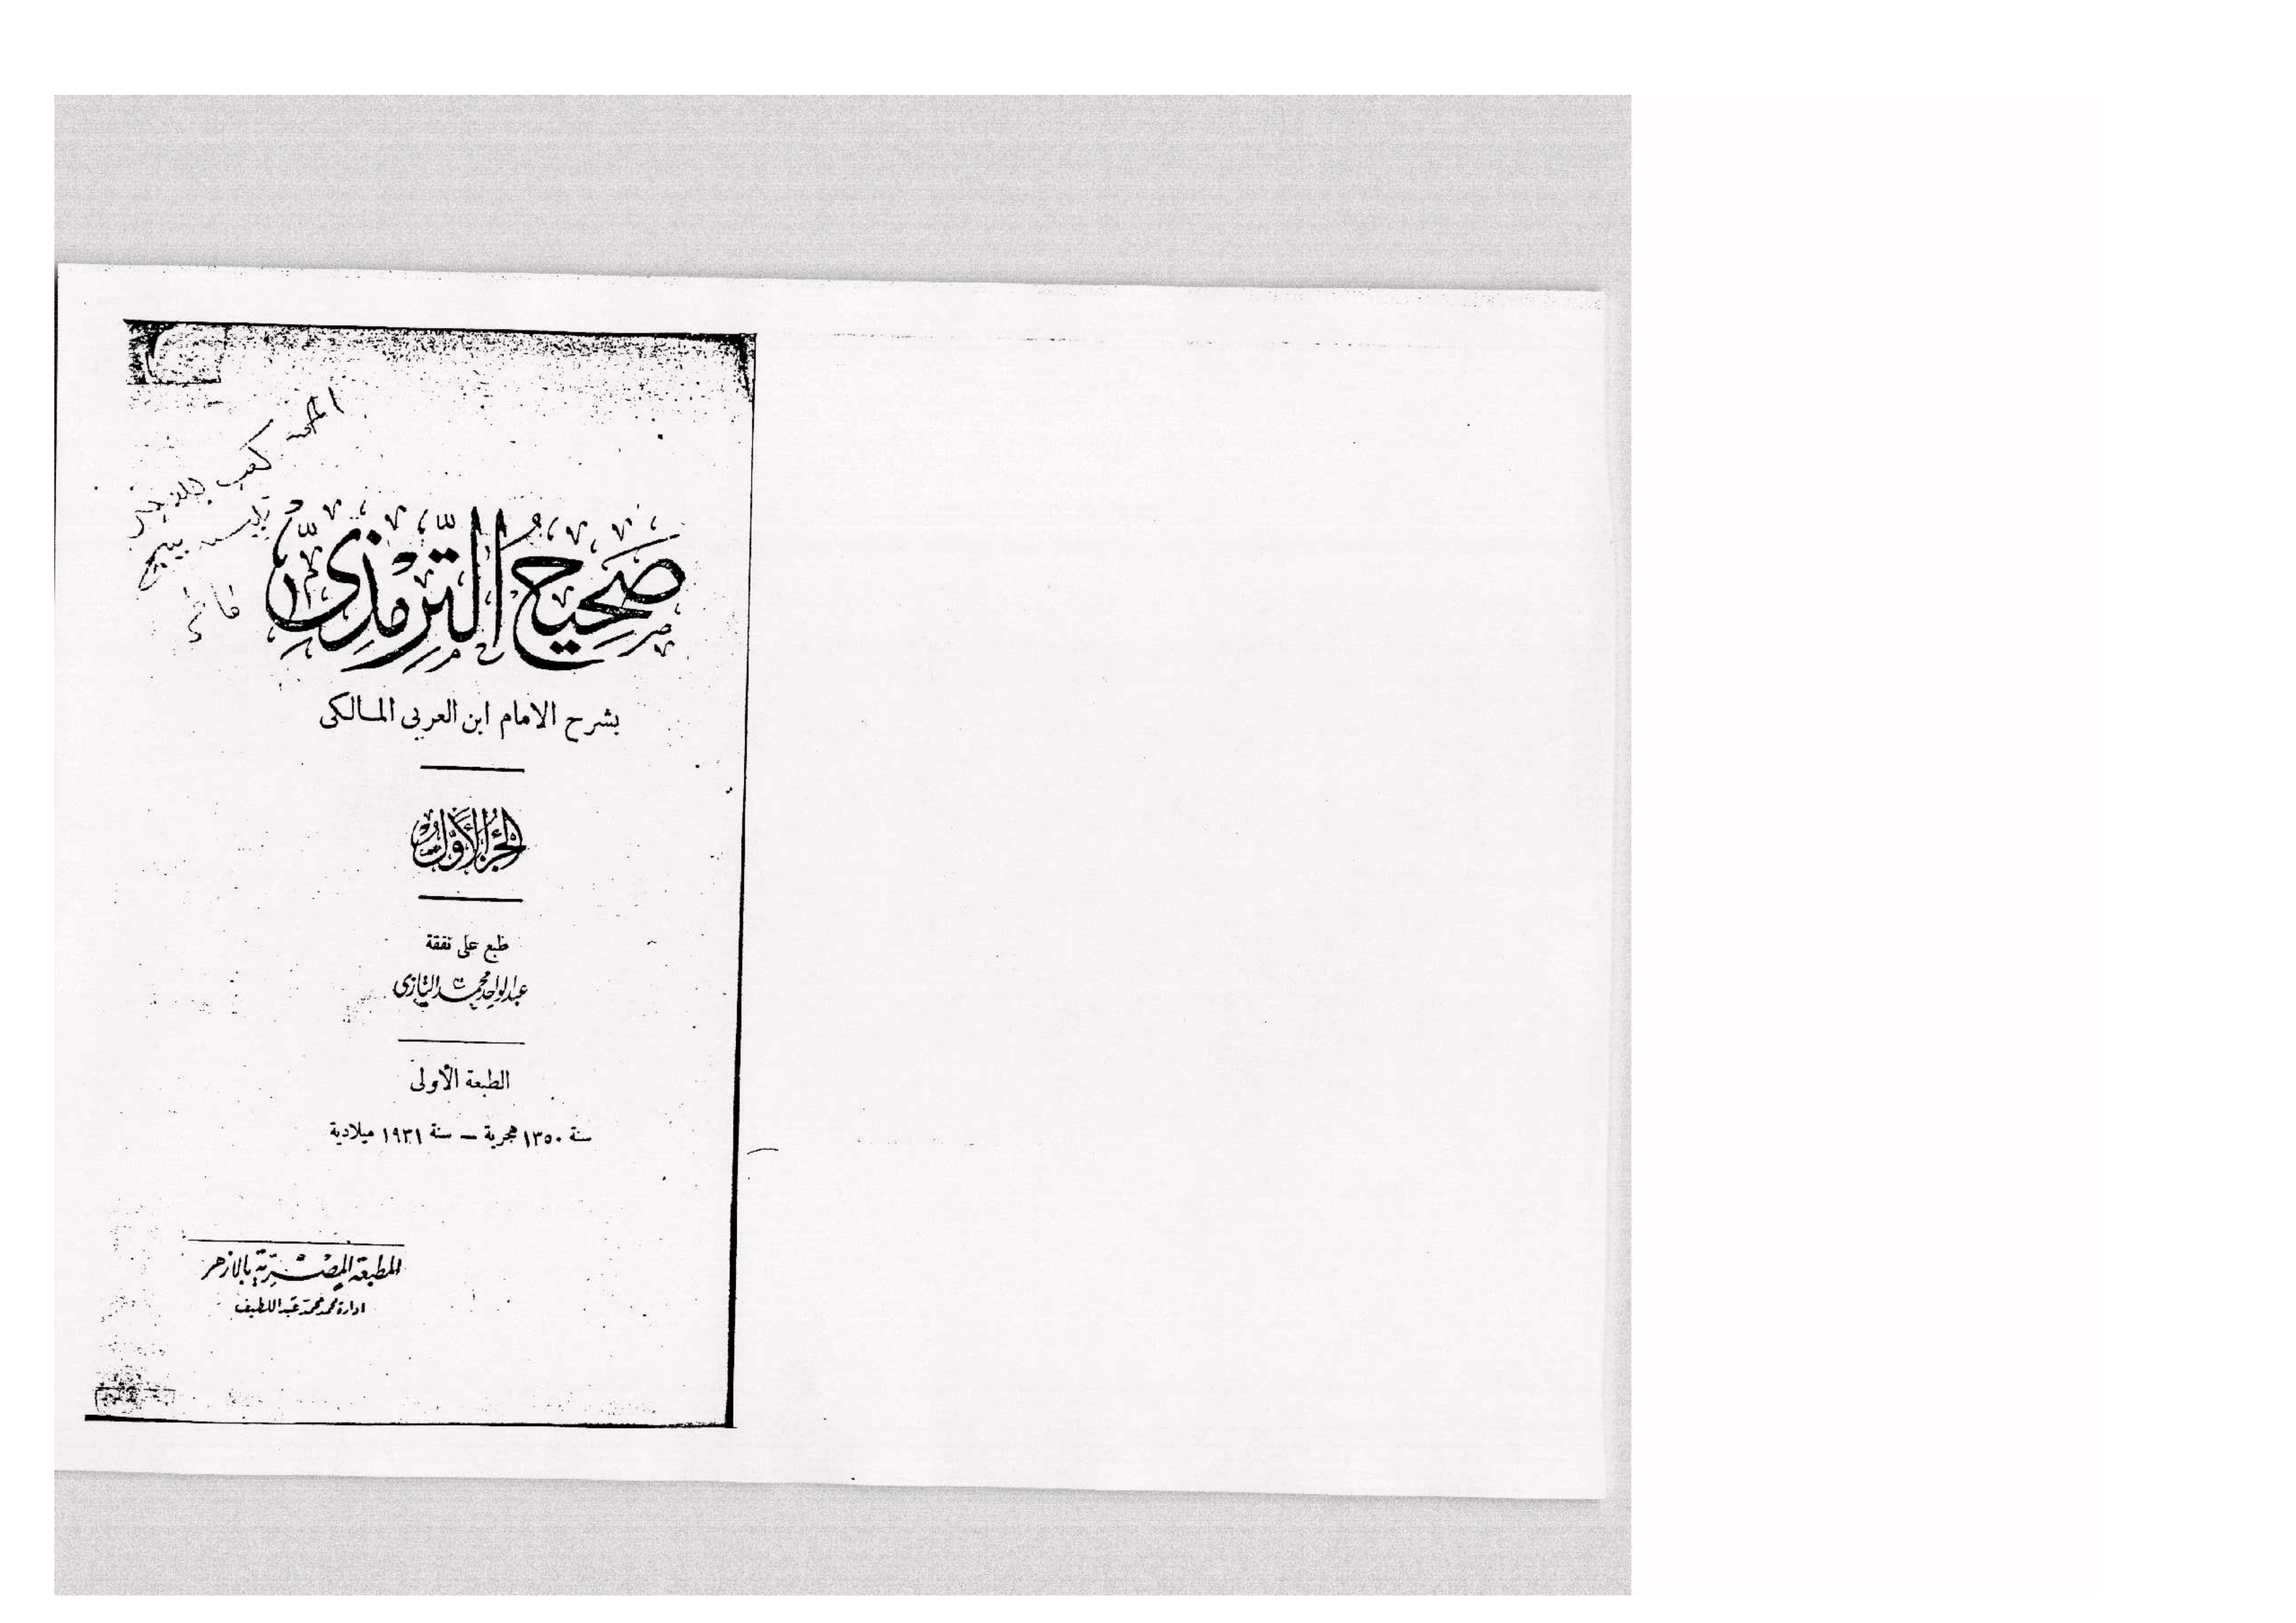 صَحِيحُ التِّرْمِذِيّ
بشرح الامام ابن العربى المالكى
الجزء الأول
طبع على نفقة
عبد الواحد محمد التازى
الطبعة الأولى
سنة ١٣٥٠ هجرية – سنة ١٩٣١ ميلادية
المطبعة المصرية بالازهر
ادارة محمد محمد عبد اللطيف